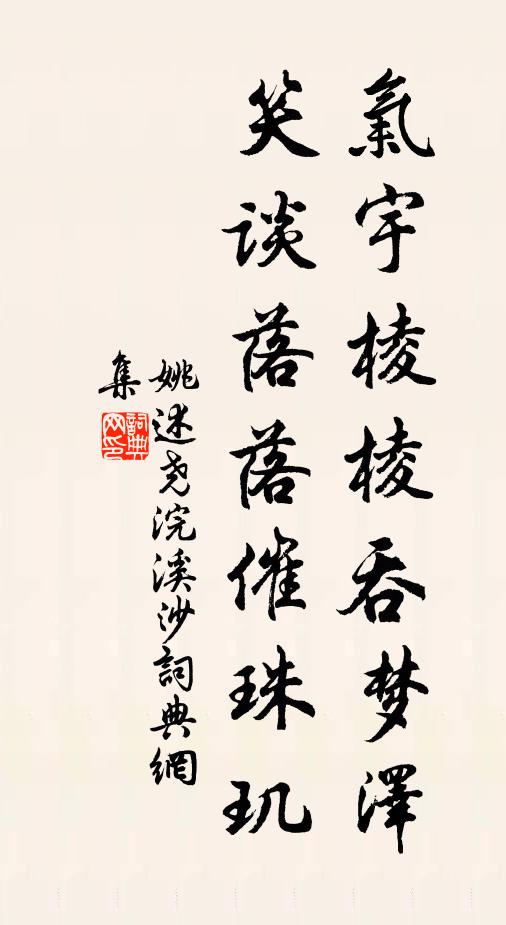 氣宇棱棱吞梦澤
笑谈落落催珠玑
姚述尧浣溪沙詞典網
集
詞典网印